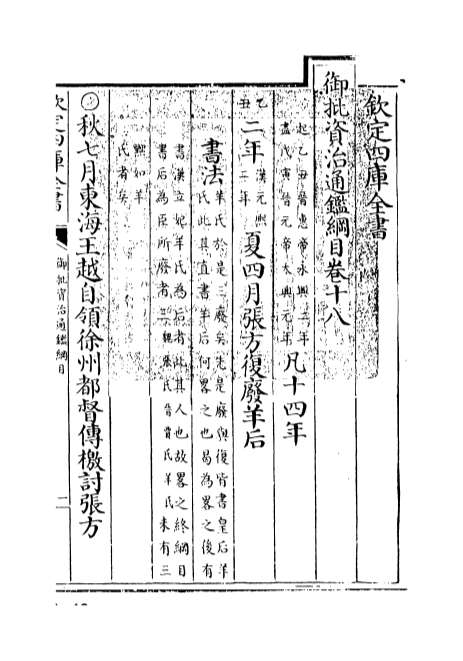 欽定四庫全書
御批資治通鑑綱目卷十八
起乙丑晉惠帝永興二年
盡戊寅晉元帝太興元年
凡十四年
乙丑
二年
漢元熙二年
夏四月張方復廢羊后
書法
羊氏於是三廢矣先是廢與復皆書皇后羊
氏此其直書羊后何畧之也曷為畧之後有
書漢立妃羊氏為后者此其人也故畧之終綱目
書后為臣所廢者三魏張氏晉賈氏羊氏未有三
黜如羊
氏者矣
秋七月東海王越自領徐州都督傳檄討張方
欽定四庫全書
御批資治通鑑綱目